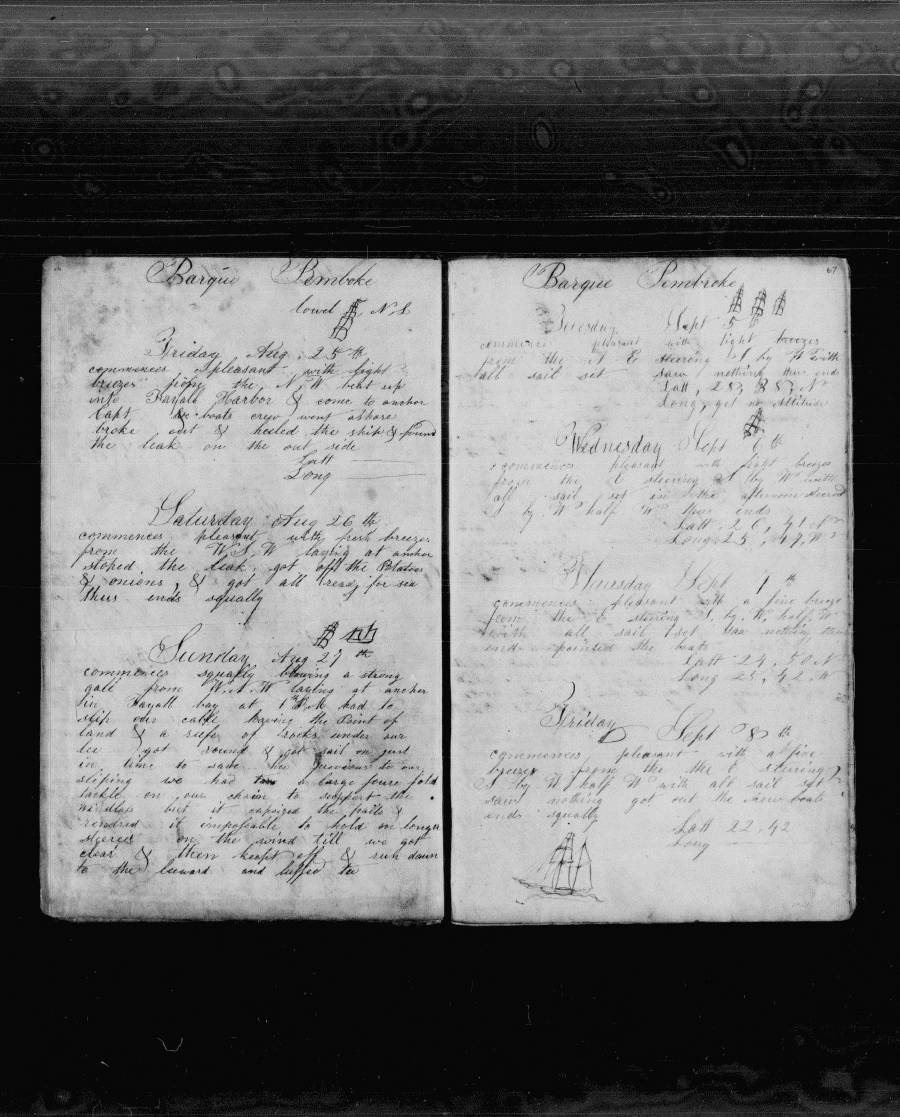 Barque Pemboke
towed N.L
Friday Aug. 25th
commences pleasant with light
breezes from the N, W beat up
into Fayall Harbor & come to anchor
Capt boats crew went ashore
broke out & heeled the ship & found
the leak on the out side
Latt
Long
Saturday Aug 26th
commences pleasant with fresh breezes
from the W.S.W laying at anchor
stoped the leak, got off the Potatoes
& onions, & got all ready for sea
thus ends squally
Sunday Aug 27th
commences squally blowing a strong
gale from laying at anchor
in Fayall bay at 1 P.M had to
slip our cable having the Point of
land & a reef of rocks under our
lee got round & got sail on just
in time to save her previous to our
sliping we had a large foure fold
tackle on our chain to support the
windlass but it capsized the palls &
rendred it imposable to hold on longer
steered on the wind till we got
clear & then keept off & run down
to the leeward and luffed too
67
Barque Pembroke
Tuesday Sept 5th
commences pleasant with light breezes
from the N E steering S by W with
all sail set saw nothing thus ends
Latt, 28, 38, N
Long, got no Altitude
Wednesday Sept 6th
commences pleasant with light breezes
from the E steering S by W with
all sail set in the afternoon steered
S by W half W thus ends
Latt. 26, 41 N
Long 25, 47, W
Thursday Sept 7th
commences pleasant with a fine breeze
from the E steering S. by. W. half. W
with all sail set saw nothing thus
ends painted the boats
Latt 24, 50 N
Long 25, 42, W
Friday Sept 8th
commences pleasant with a fine
breeze from the the E steering
S by W half W with all sail set
saw nothing got out the new boats
ends squally
Latt 22, 42
Long